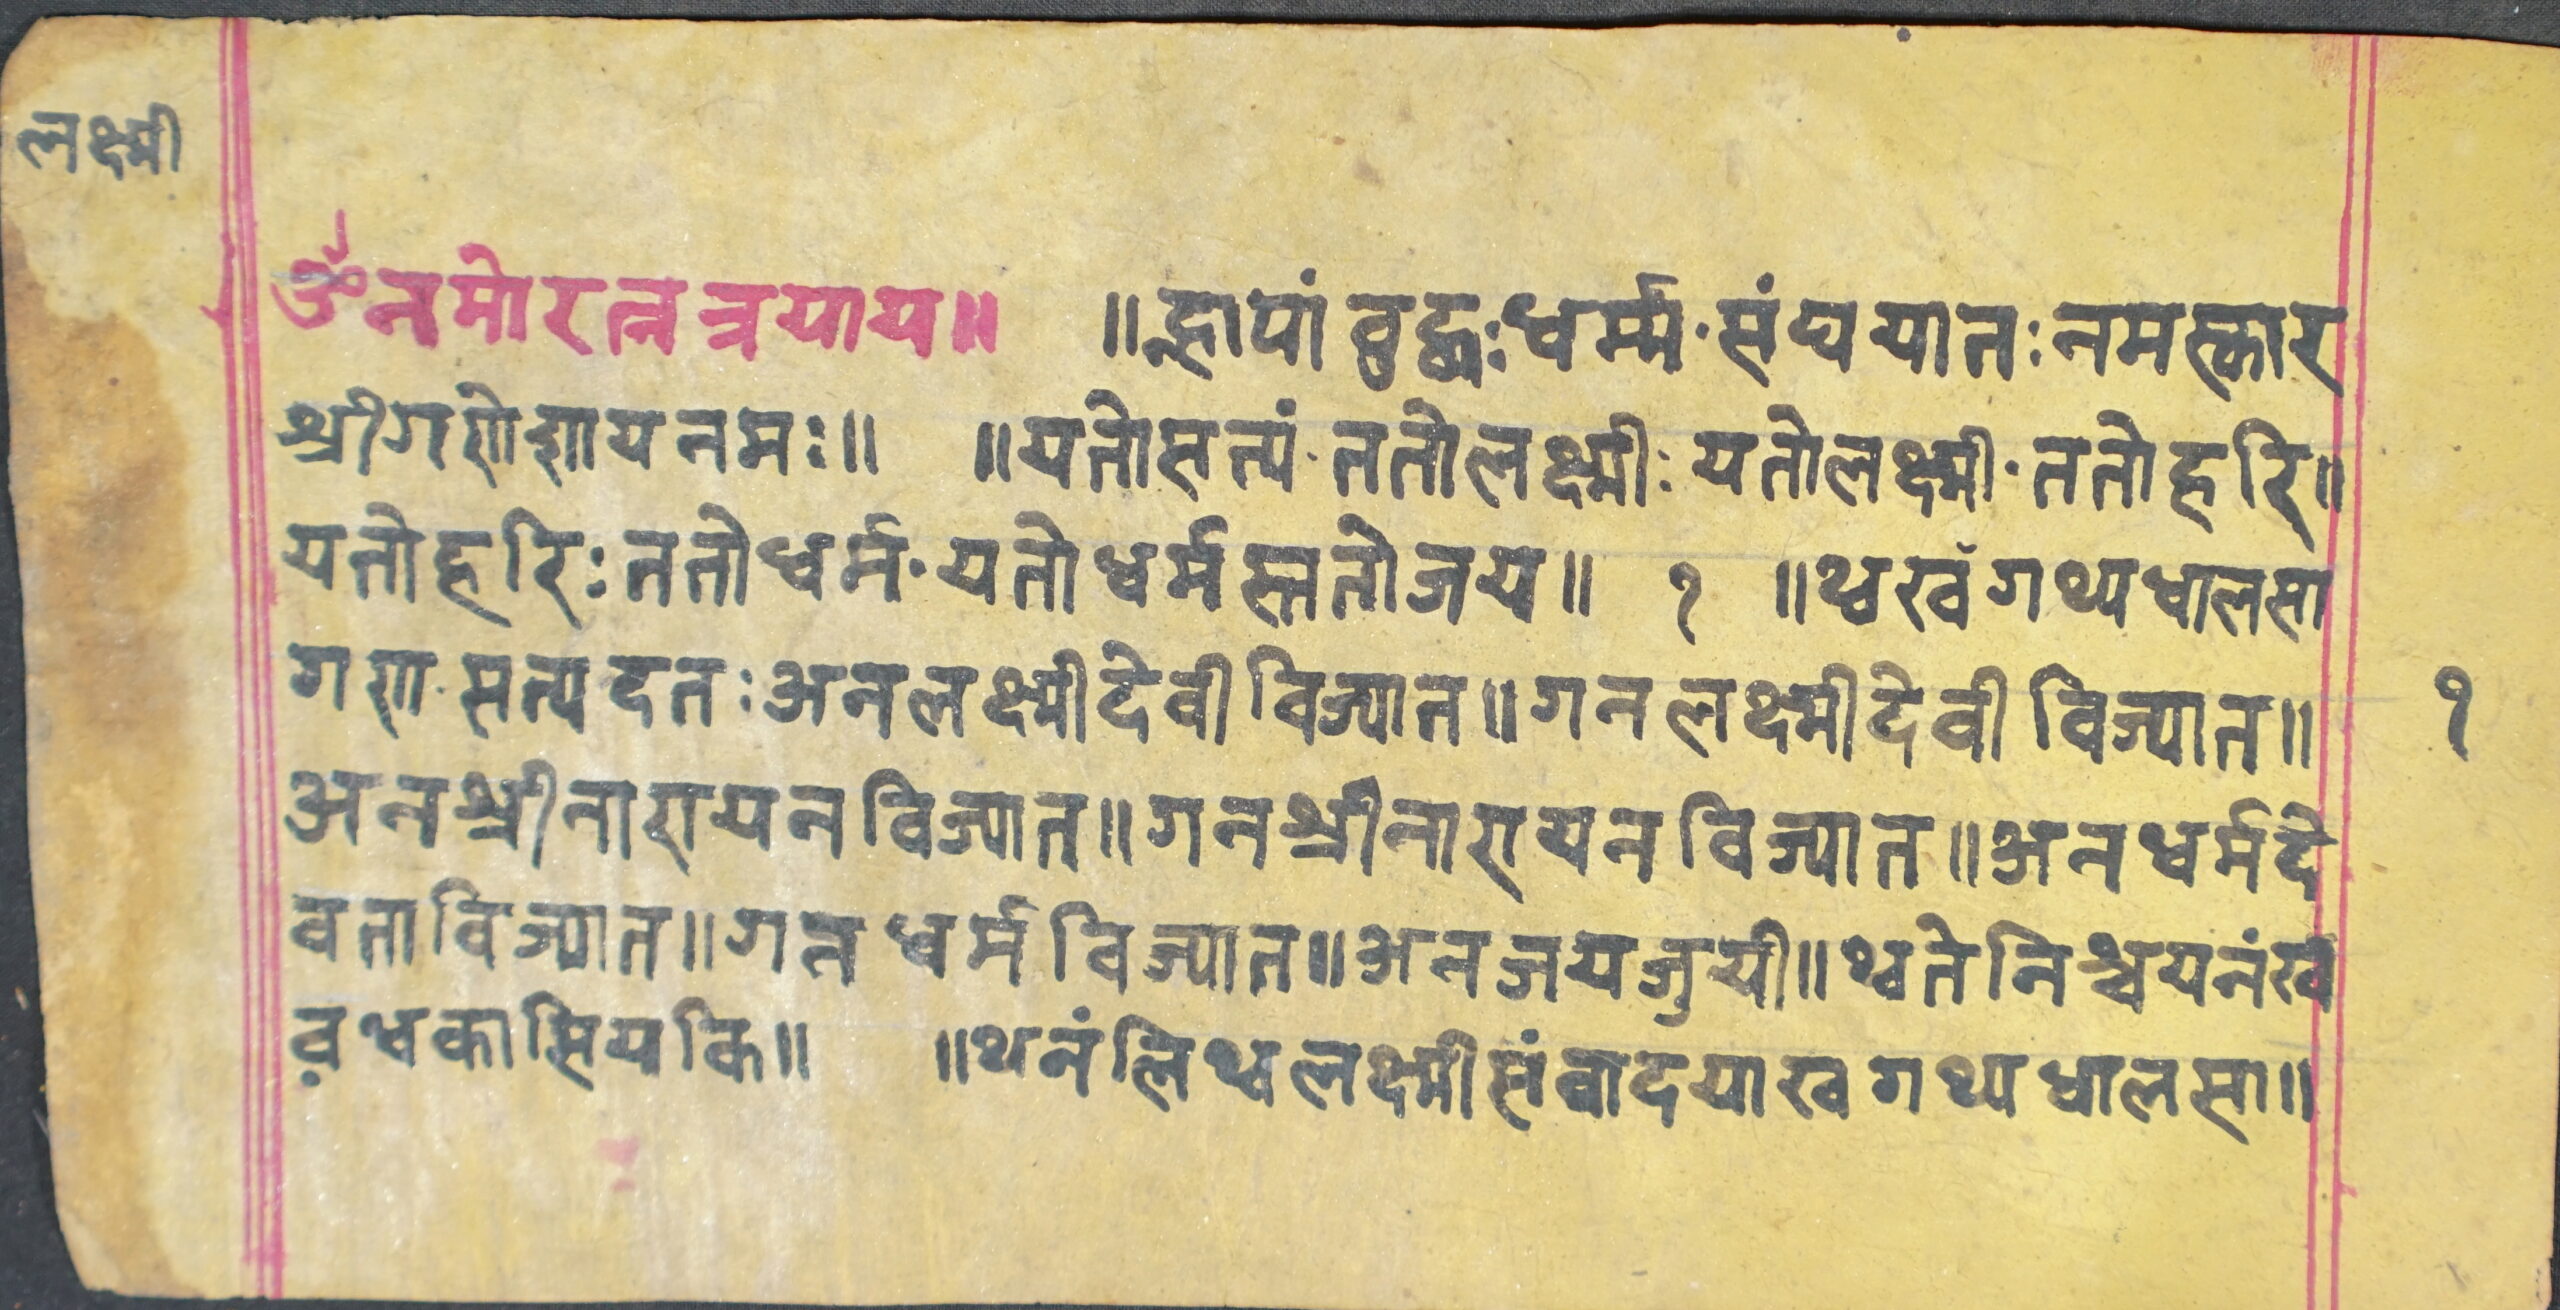 लक्ष्मी
ॐ नमो रत्नत्रयाय॥ ॥ह्लापां बुद्धः धर्म्म·संघयातः नमस्कार
श्रीगणेशायनमः॥ ॥यतोसत्यं·ततोलक्ष्मीः यतोलक्ष्मी·ततोहरि॥
यतोहरिः ततोधर्म·यतोधर्मस्ततोजय॥ १ ॥थ्वखँगथ्यधालसा
गण·सत्यदतः अनलक्ष्मीदेवीविज्यात॥गनलक्ष्मीदेवीविज्यात॥
अनश्रीनारायनविज्यात॥गनश्रीनारायनविज्यात॥अनधर्मदे
वताविज्यात॥गनधर्मविज्यात॥अनजयजुयी॥थ्वतेनिश्चयनंखँ
व़थ्वकासियकि॥ ॥थनंलिथ्वलक्ष्मीसंवादयाखगथ्यधालसा॥
१